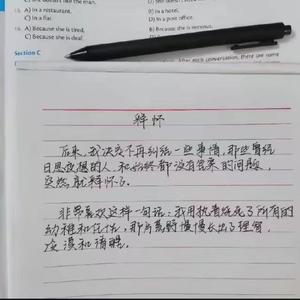 C) She doesn't like the man.
15. A) In a restaurant. B) In a hotel.
C) In a flat. D) In a post office.
16. A) Because she is tired. B) Because she is nervous.
C) Because she is deaf.
Section C
After each conversation, there are some
释怀
后来，我决定不再纠结一些事情，那些曾经
日思夜想的人，和始终都没有答案的问题，
突然就释怀了。
非常喜欢这样一句话：我用执着烧死了所有的
幼稚和任性，那片荒野慢慢长出了理智，
冷漠和清醒。